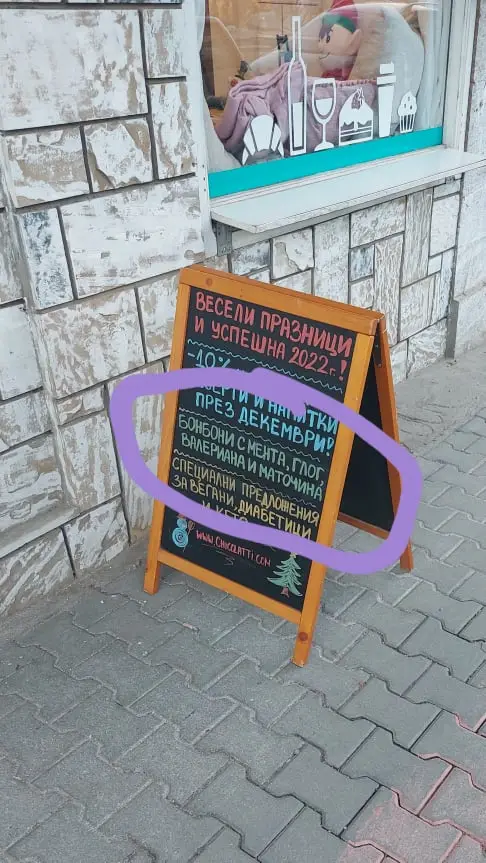 ВЕСЕЛИ ПРАЗНИЦИ
И УСПЕШНА 2022г.!
-10%
И НАПИТКИ
ПРЕЗ ДЕКЕМВРИ!
БОНБОНИ С МЕНТА, ГЛОГ,
ВАЛЕРИАНА И МАТОЧИНА
СПЕЦИАЛНИ ПРЕДЛОЖЕНИЯ
ЗА ВЕГАНИ, ДИАБЕТИЦИ
И КЕТО
WWW.CHICOLATTI.COM